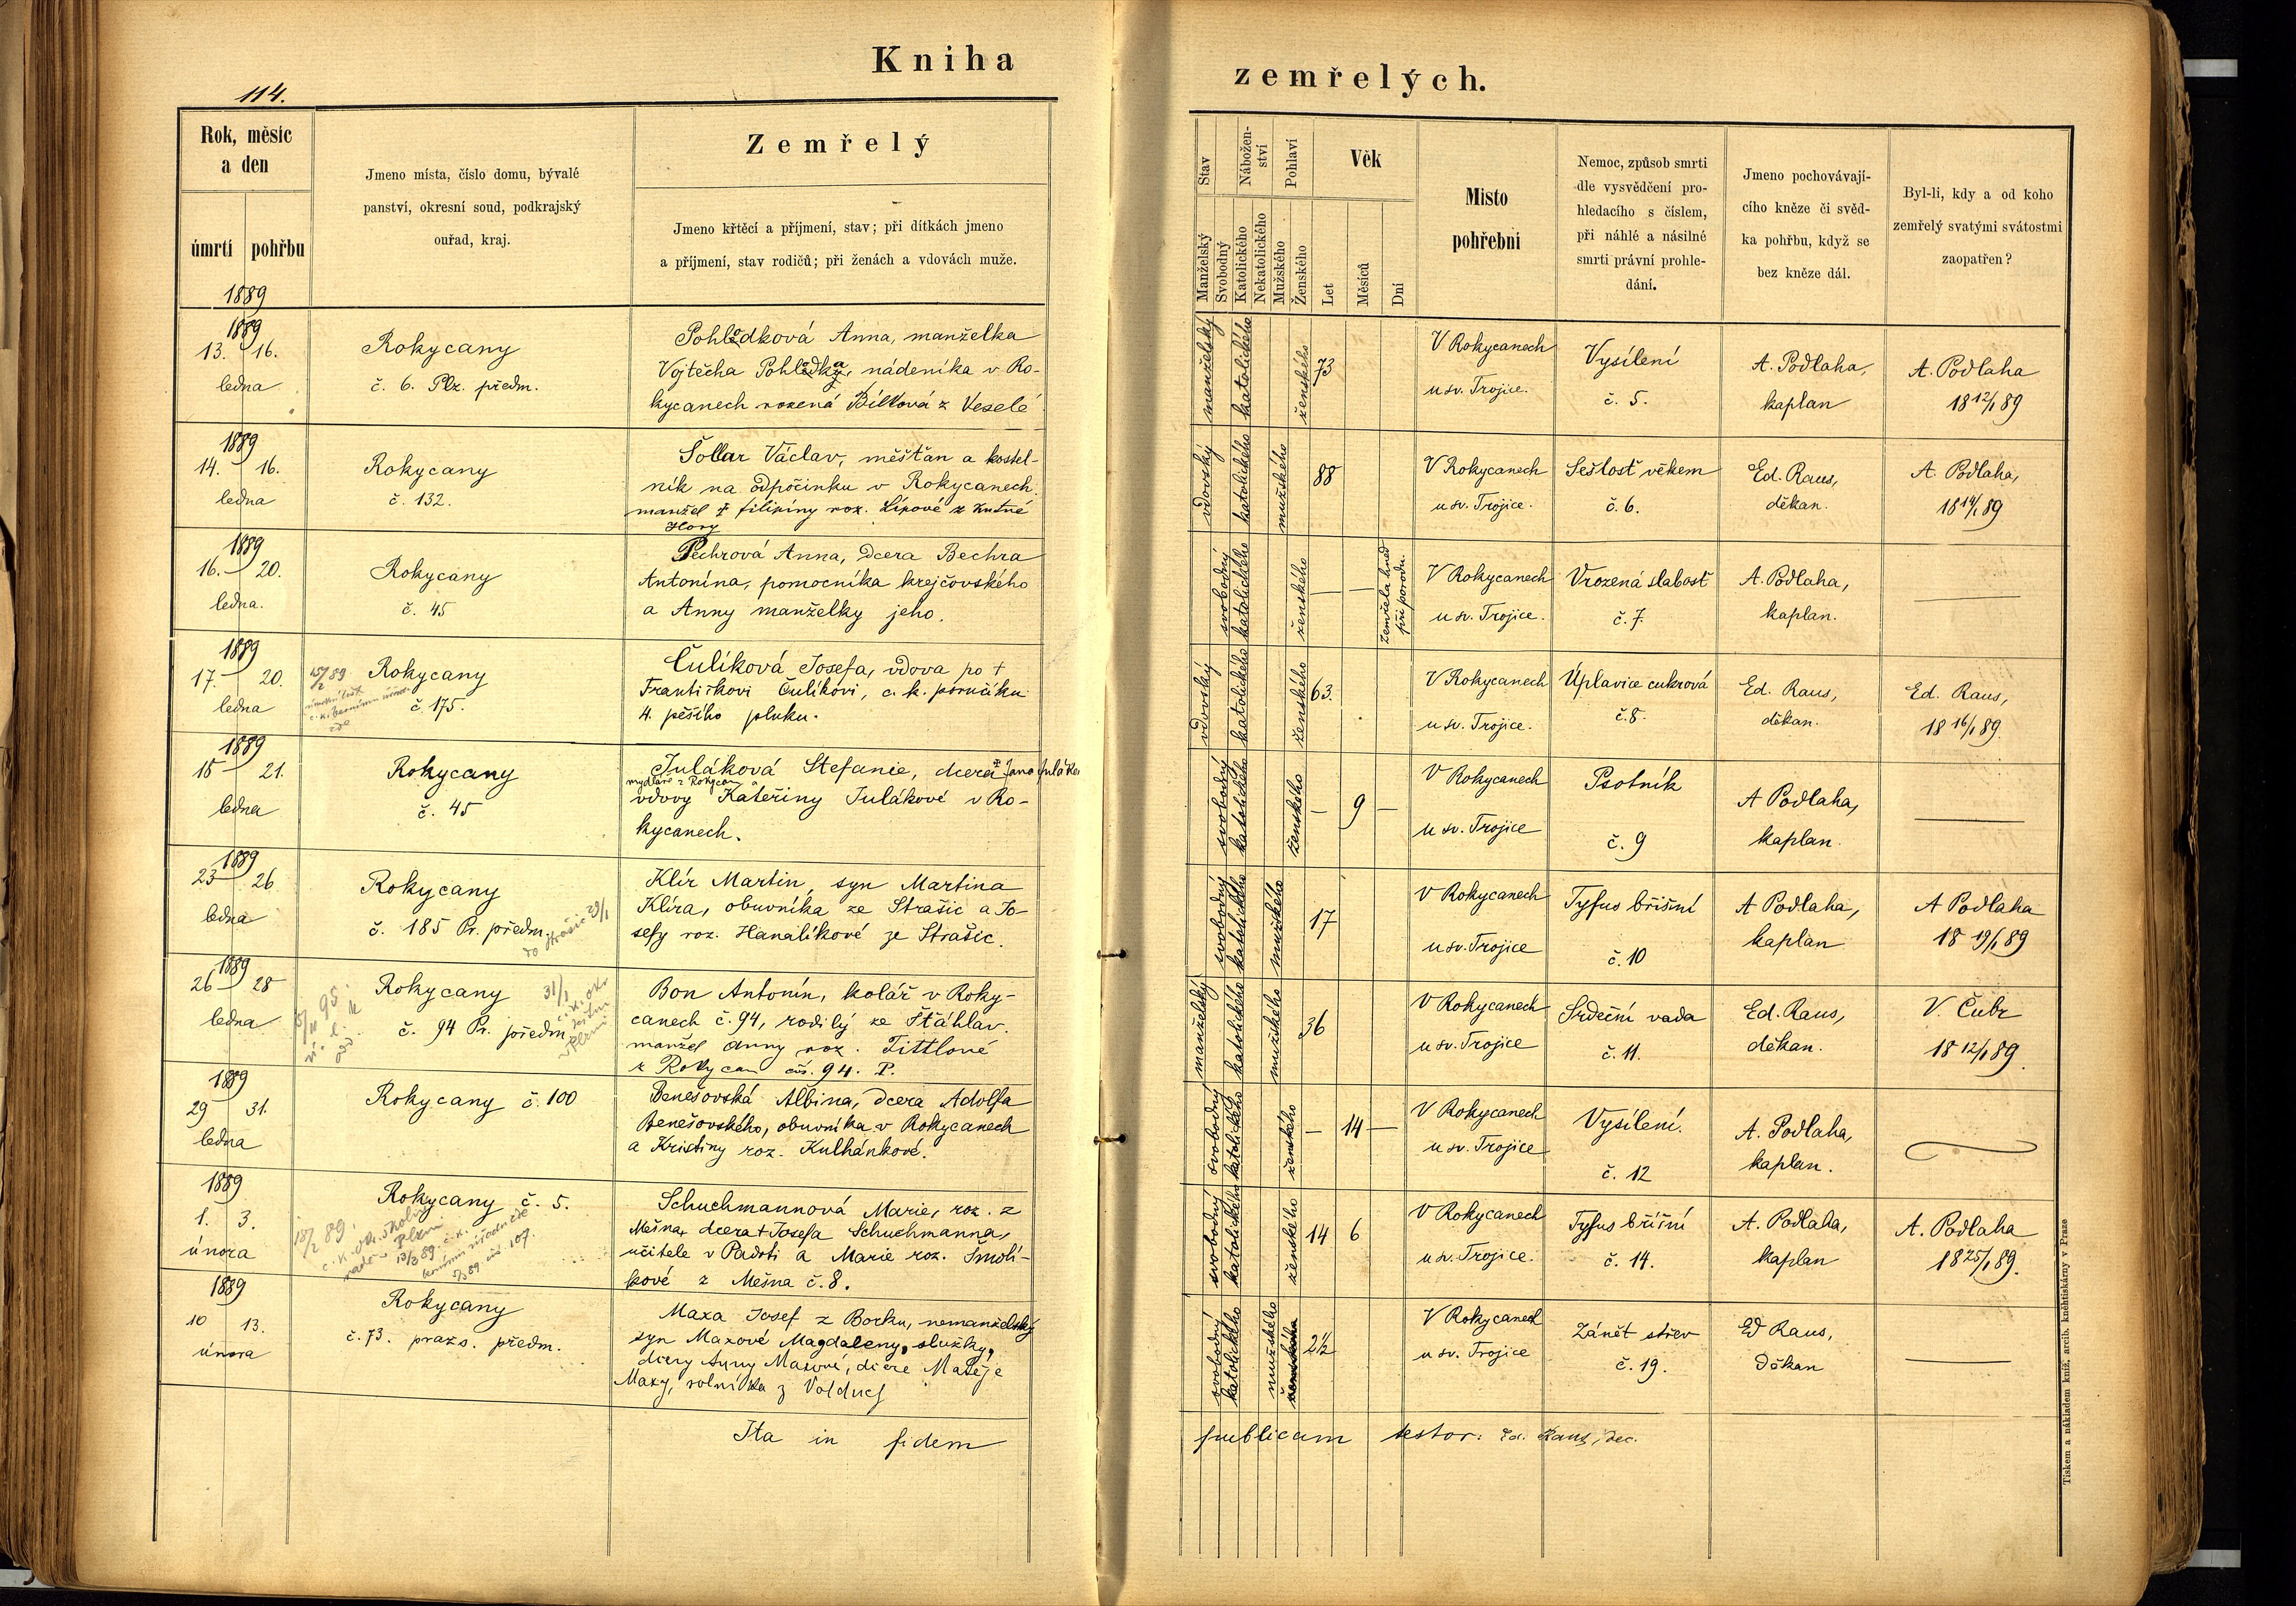 Kniha
zemřelých.
114.
Rok, měsíc
a den
úmrtí
pohřbu
1889
Jmeno místa, číslo domu, bývalé
panství, okresní soud, podkrajský
ouřad, kraj.
Zemřelý
Jmeno křtěcí a příjmení, stav; při dítkách jmeno
a příjmení, stav rodičů; při ženách a vdovách muže.
Stav
Manželský
Svobodný
Nábožen-
ství
Katolického
Nekatolického
Pohlaví
Mužského
Ženského
Věk
Let
Měsíců
Dní
Misto
pohřebni
Nemoc, způsob smrti
dle vysvědčení pro-
hledacího s číslem,
při náhlé a násilné
smrti právní prohle-
dání.
Jmeno pochovávají-
cího kněze či svěd-
ka pohřbu, když se
bez kněze dál.
Byl-li, kdy a od koho
zemřelý svatými svátostmi
zaopatřen?
1889
13. 16.
ledna
Rokycany
č. 6. Plz. předm.
Pohlodková Anna, manželka
Vojtěcha Pohlodka, nádeníka v Ro-
kycanech rozená Bílková z Veselé
manželský
katolického
ženského
73
V Rokycanech
u sv. Trojice.
Vysílení
č. 5.
A. Podlaha,
kaplan
A. Podlaha
18 12/1 89
1889
14. 16.
ledna
Rokycany
č. 132.
Šollar Václav, měšťan a kostel-
ník na odpočinku v Rokycanech
manžel † Filipiny roz. Lípové z Kutné
Hory
vdovský
katolického
mužského
88
V Rokycanech
u sv. Trojice.
Sešlosť věkem
č. 6.
Ed. Raus,
děkan.
A. Podlaha,
18 14/1 89
1889
16. 20.
ledna.
Rokycany
č. 45
Pechrová Anna, dcera Bechra
Antonína, pomocníka krejčovského
a Anny manželky jeho.
svobodný
katolického
ženského
— —
zemřela hned
při porodu.
V Rokycanech
u sv. Trojice.
Vrozená slabosť
č. 7.
A. Podlaha,
kaplan.
—
1889
17. 20.
ledna
15/2 89
Rokycany
č. 175.
Čulíková Josefa, vdova po †
Františkovi Čulíkovi, c. k. poručíku
4. pěšího pluku.
vdovský
katolického
ženského
63.
V Rokycanech
u sv. Trojice.
Úplavice cukrová
č. 8.
Ed. Raus,
děkan.
Ed. Raus,
18 16/1 89.
1889
18 21.
ledna
Rokycany
č. 45
Juláková Stefanie, dcera † Jana Juláka
mydláře z Rokycan a
vdovy Kateřiny Julákové v Ro-
kycanech.
svobodný
katolického
ženského
— 9 —
V Rokycanech
u sv. Trojice
Psotník
č. 9
A Podlaha,
kaplan.
—
1889
23 26
ledna
Rokycany
č. 185 Pr. předm.
do Strašic 29/1
Klír Martin, syn Martina
Klíra, obuvníka ze Strašic a Jo-
sefy roz. Hanalíkové ze Strašic.
svobodný
katolického
mužského
17
V Rokycanech
u sv. Trojice
Tyfus břišní
č. 10
A Podlaha,
kaplan
A Podlaha
18 19/1 89
1889
26 28
ledna
Rokycany
č. 94 Pr. předm.
31/1
Bon Antonín, kolář v Roky-
canech č. 94, rodilý ze Šťáhlav.
manžel Anny roz. Tittlové
z Rokycan čís. 94. P.
manželský
katolického
mužského
36
V Rokycanech
u sv. Trojice
Srdeční vada
č. 11.
Ed. Raus,
děkan.
V. Čubr
18 12/1 89.
1889
29 31.
ledna
Rokycany č. 100
Benešovská Albina, dcera Adolfa
Benešovského, obuvníka v Rokycanech
a Kristiny roz. Kulhánkové.
svobodný
katolického
ženského
— 14 —
V Rokycanech
u sv. Trojice
Vysílení.
č. 12
A. Podlaha,
kaplan.
1889
1. 3.
února
Rokycany č. 5.
18/2 89.
Schuchmannová Marie, roz. z
Mešna, dcera † Josefa Schuchmanna,
učitele v Padrti a Marie roz. Šmolí-
kové z Mešna č. 8.
svobodný
katolického
ženského
14 6
V Rokycanech
u sv. Trojice.
Tyfus břišní
č. 14.
A. Podlaha,
kaplan
A. Podlaha
18 25/1 89.
1889
10 13.
února
Rokycany
č. 73. pražs. předm.
Maxa Josef z Borku, nemanželský
syn Maxové Magdaleny, služky,
dcery Anny Maxové, dcere Matěje
Maxy, rolníka z Volduch
svobodný
katolického
mužského
2½
V Rokycanech
u sv. Trojice
Zánět střev
č. 19.
Ed Raus,
děkan
—
Ita in fidem
publicam testor: Ed. Raus, dec.
Tiskem a nákladem kníž. arcib. knihtiskárny v Praze